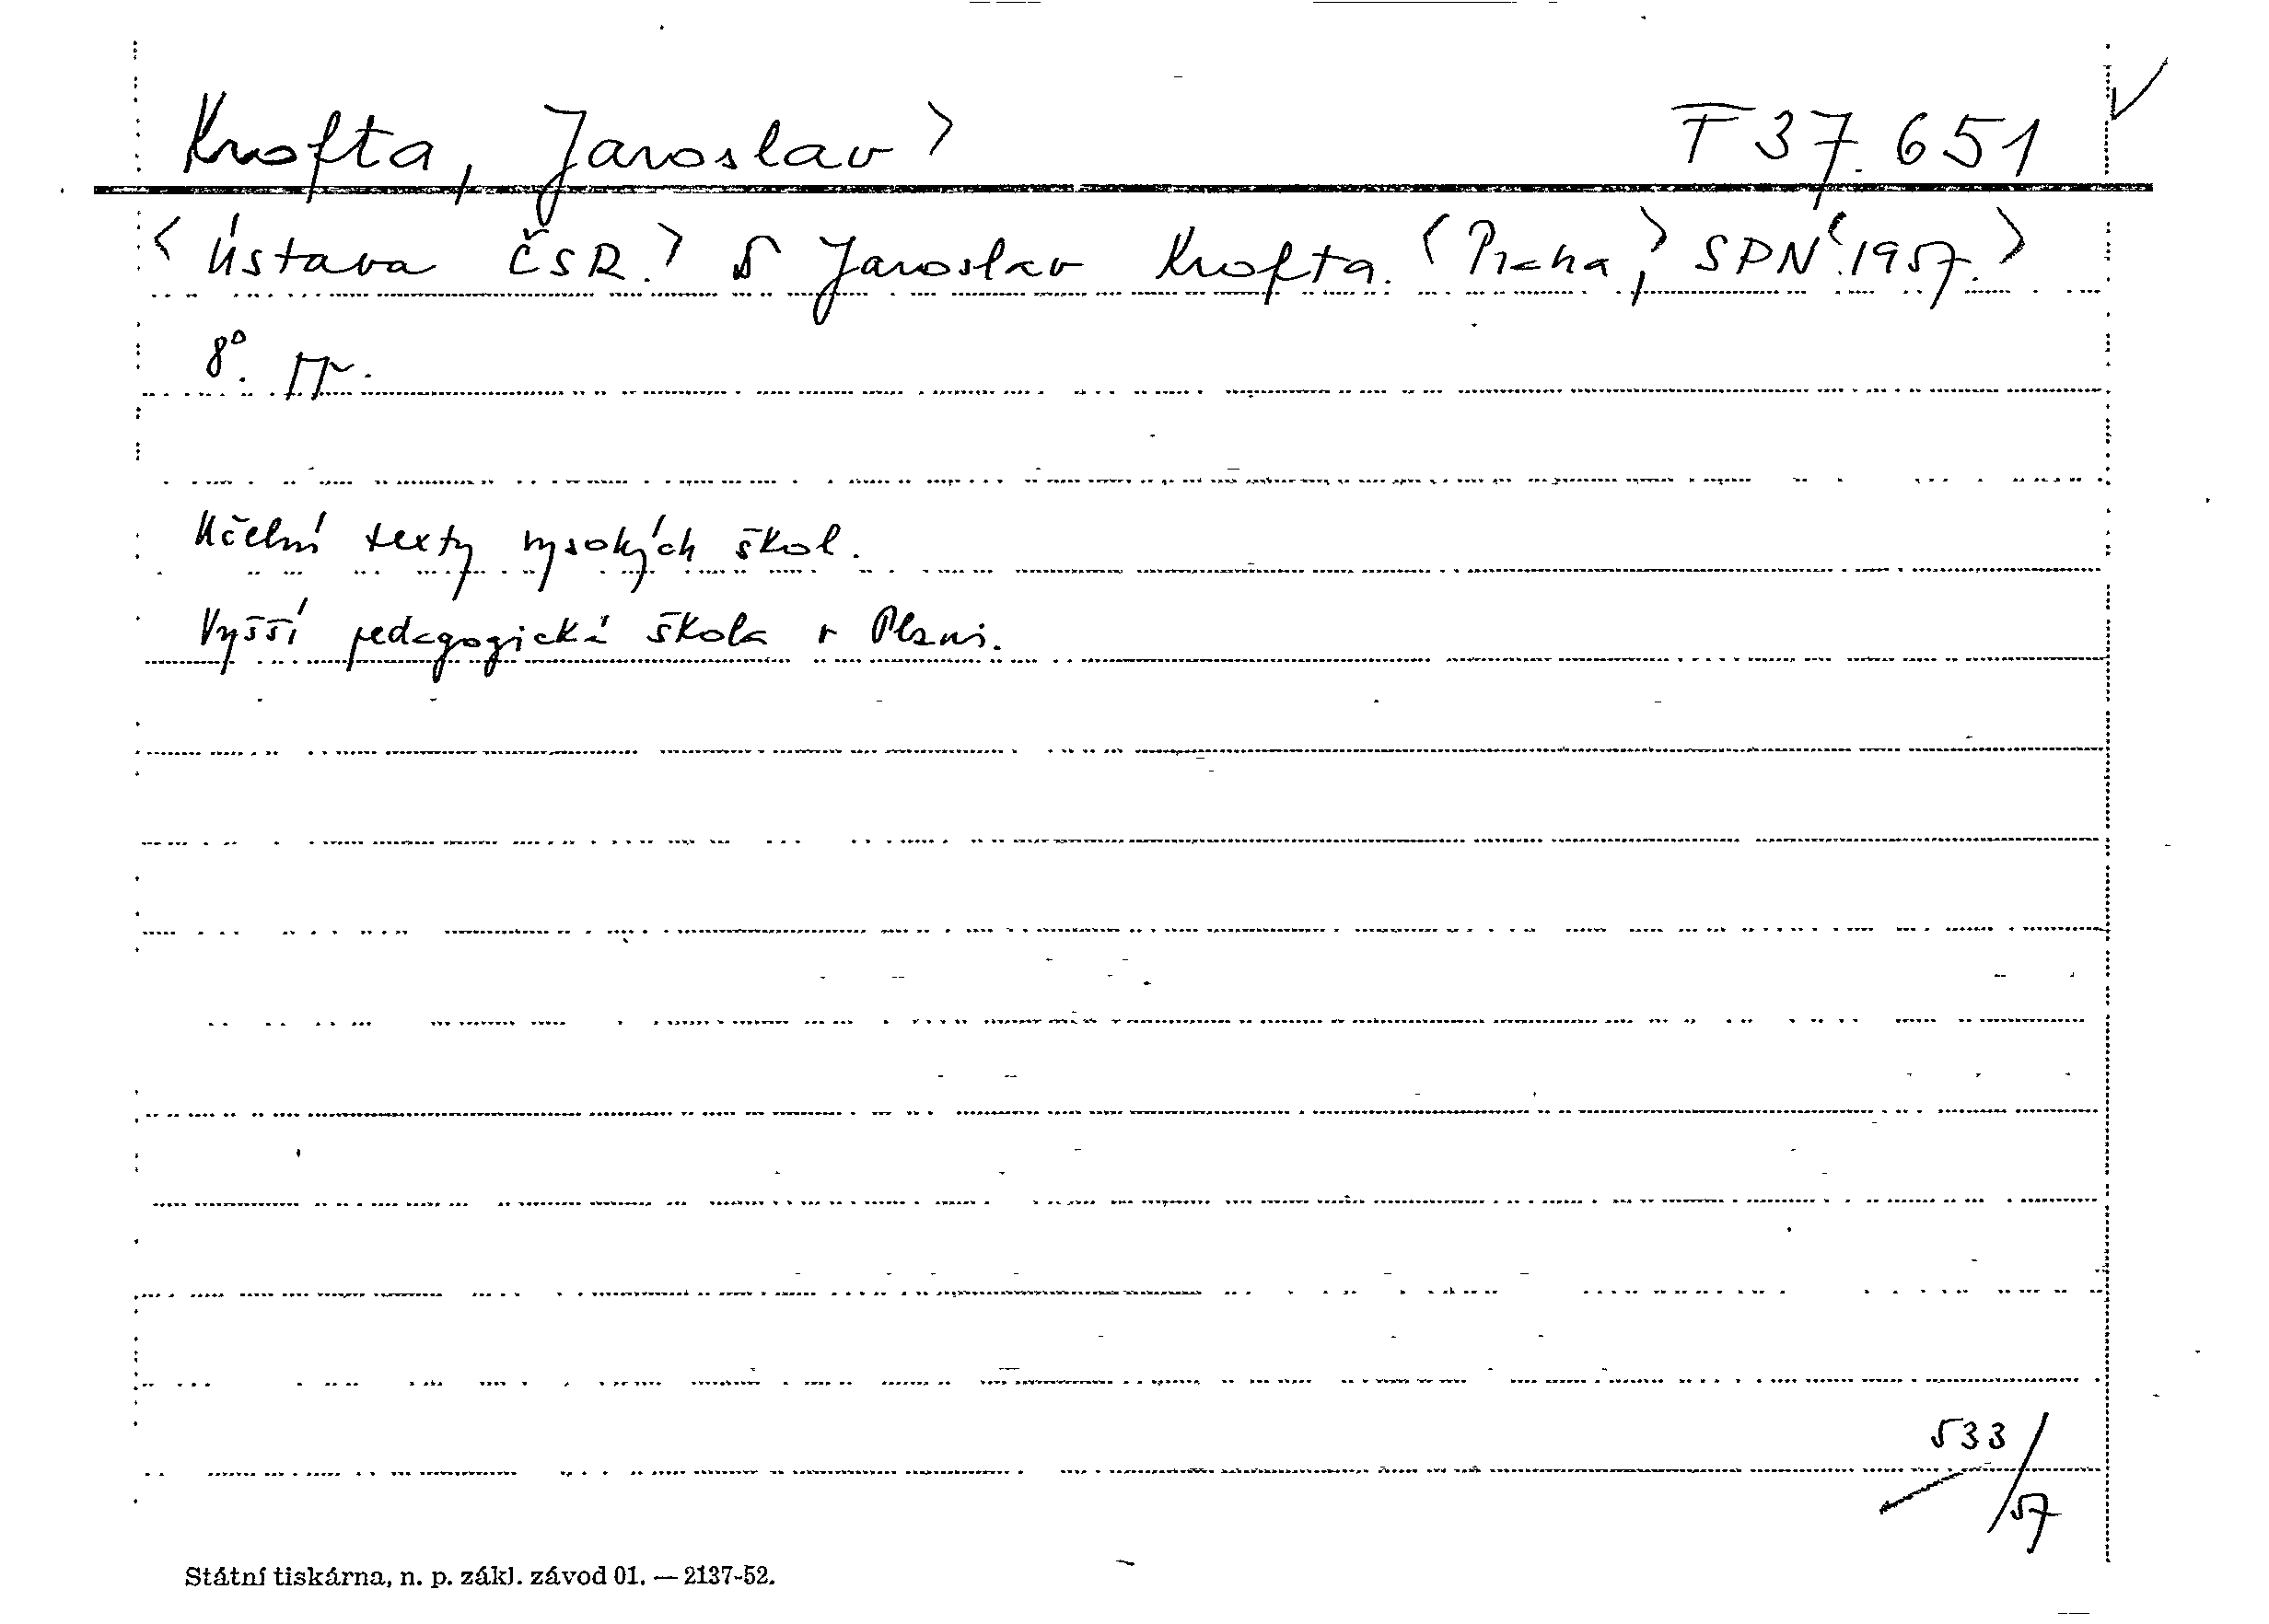 Krofta, Jaroslav> T 37.651
<Ústava ČSR.> S Jaroslav Krofta. <Praha,> SPN <1957.>
8°.
Učební texty vysokých škol.
Vyšší pedagogická škola v Plzni.
533/57
Státní tiskárna, n. p. zákl. závod 01. — 2137-52.